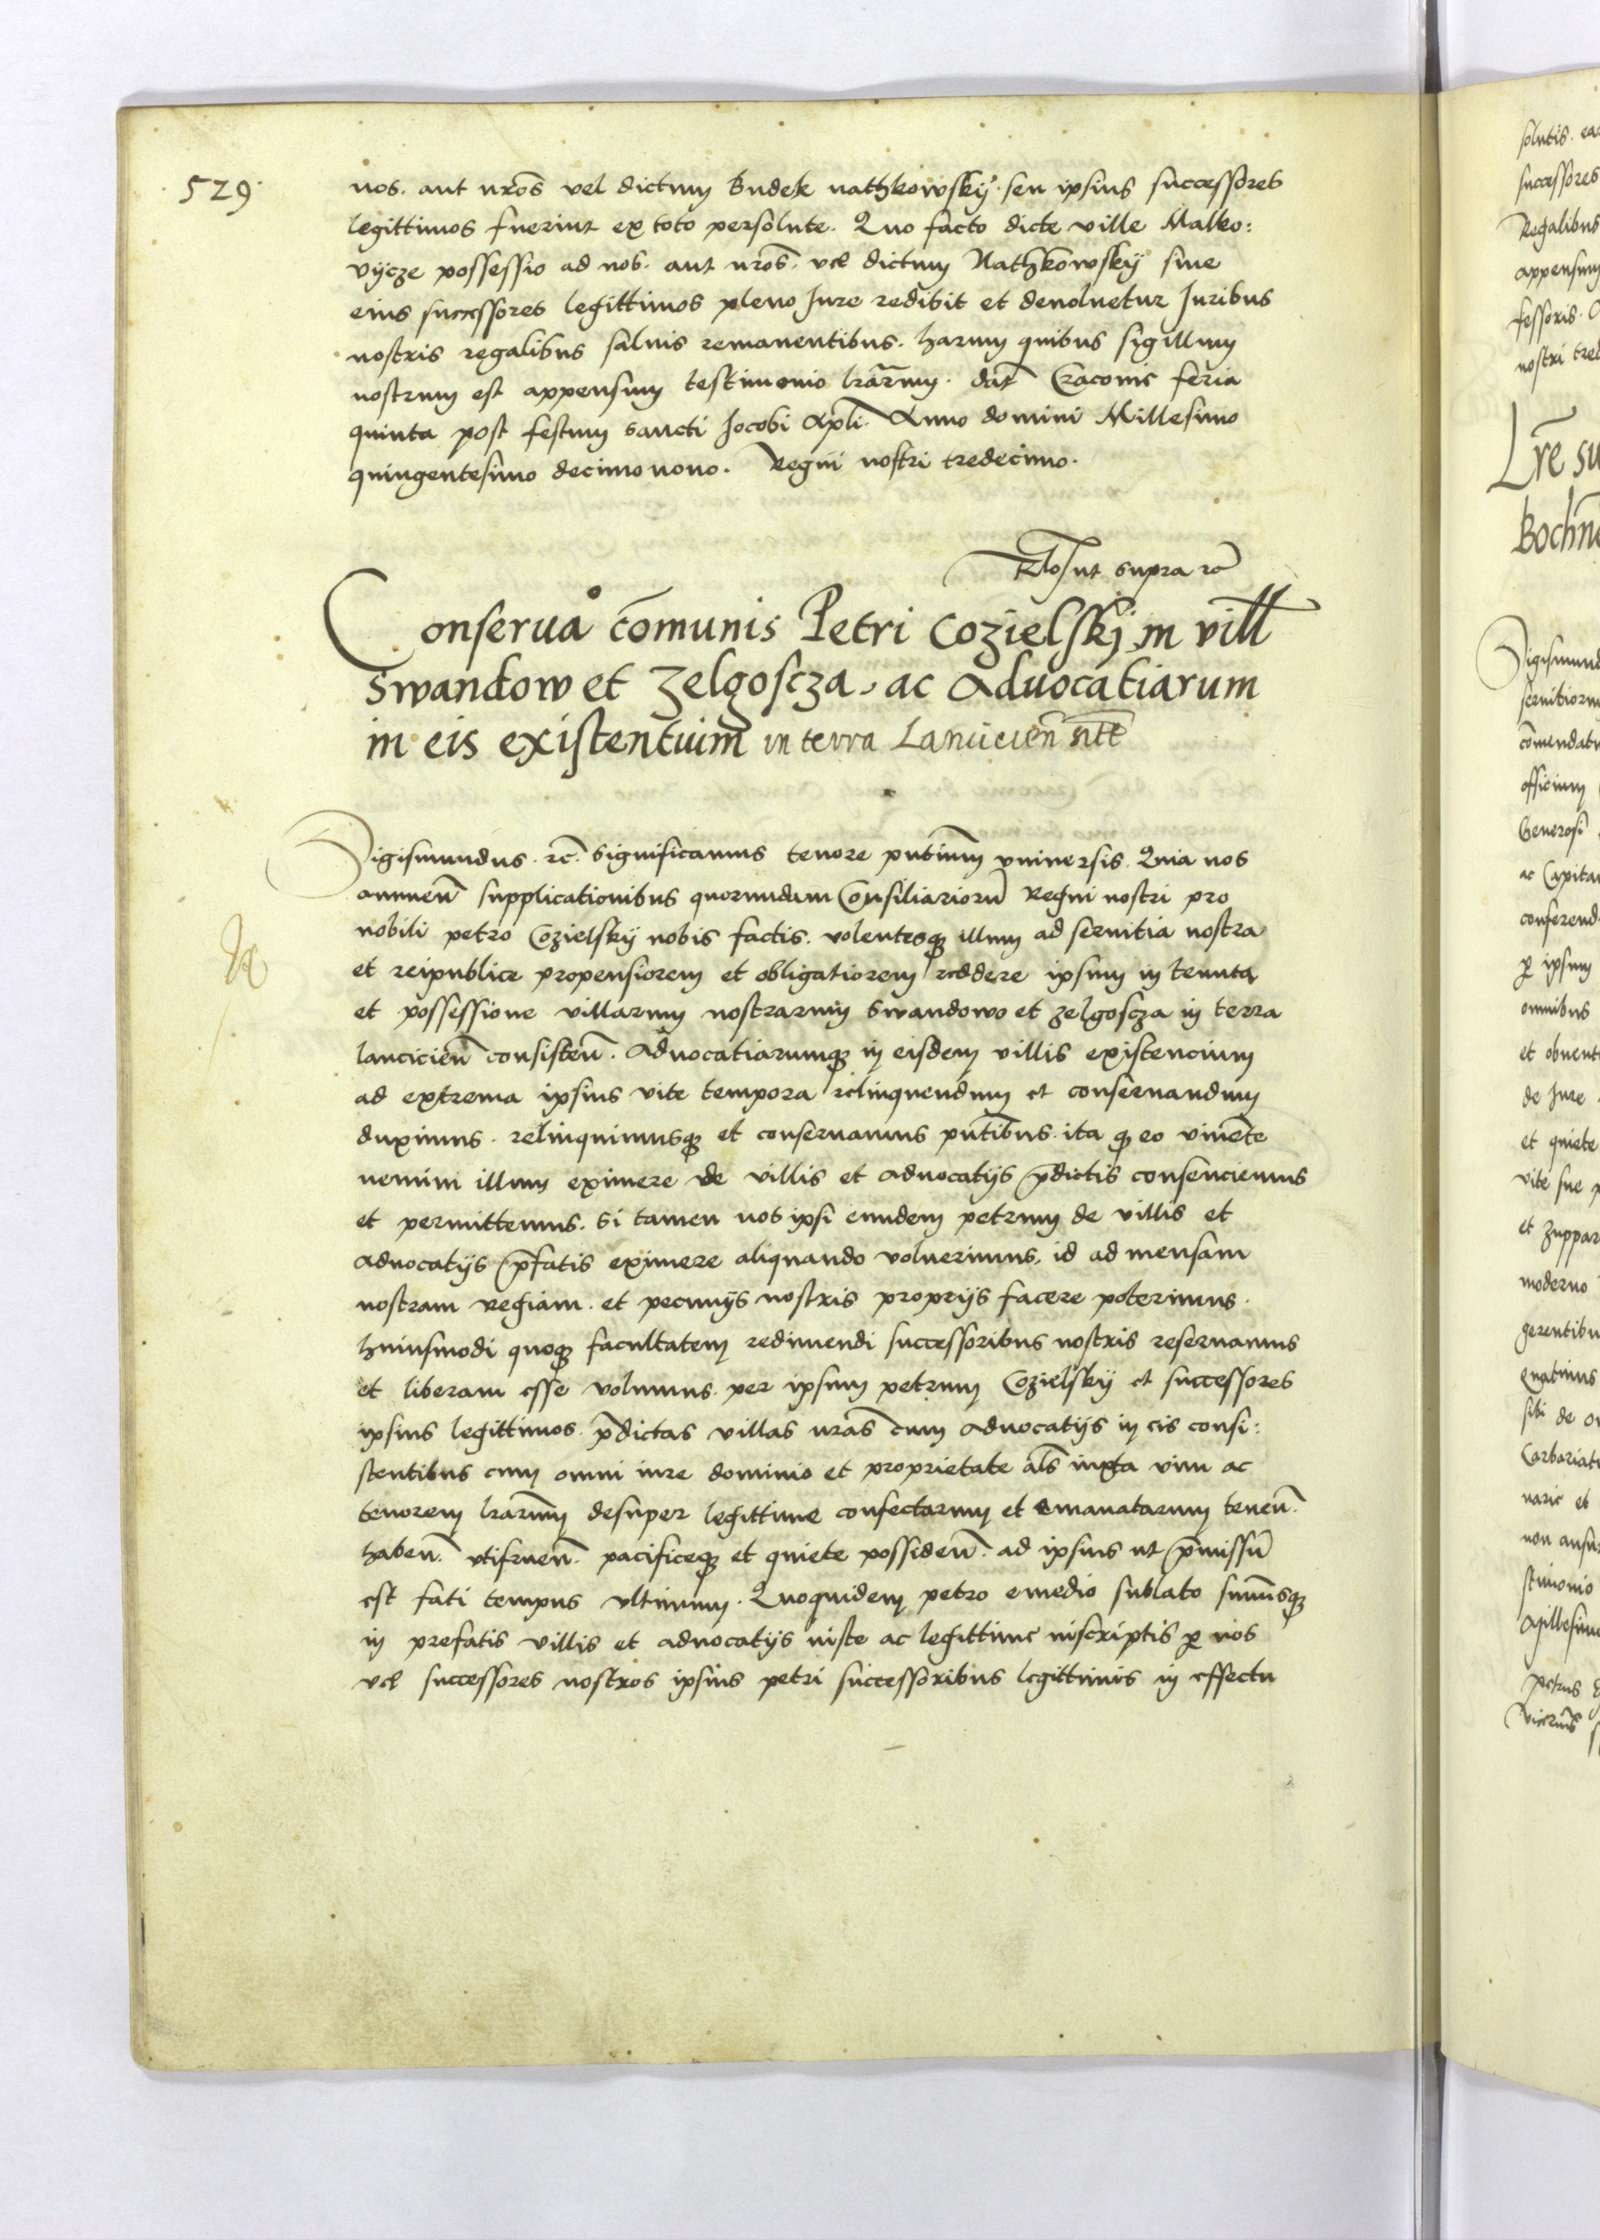 529.
nos. aut nros̄ vel dictum Sudek nathkowskÿ. seu ipsius successores
legittimos fuerint ex toto persolute. Quo facto dicte ville Malko:
vÿcze possessio ad nos. aut nros̄. vel dictum Nathkowskÿ siue
eius successores legittimos pleno Jure redibit et deuoluetur Juribus
nostris regalibus saluis remanentibus. harum quibus sigillum
nostrum est appensum testimonio lrārum. dat̄ Cracouie feria
quinta post festum sancti Jacobi Apli. Anno domini Millesimo
quingentesimo decimo nono. Regni nostri tredecimo.
Rlō ut supra rc̄
Conserua͞o com̄unis Petri Cozielskj in vill
Swandow et Zelgoscza, ac Aduocatiarum
in eis existentium in terra Lancicien̄
Sigismundus. rc̄. Significamus tenore pn̄tium vniuersis. Quia nos
annuen̄ supplicationibus quorundam Consiliarioru̅ Regni nostri pro
nobili petro Cozielskÿ nobis factis. volentesq illum ad seruitia nostra
et reipublice propensiorem et obligatiorem reddere ipsum in tenuta
et possessione villarum nostrarum Swandowo et zelgoscza in terra
lancicien̄ consisten̄. Aduocatiarumq in eisdem villis existencium
ad extrema ipsius vite tempora relinquendum et conseruandum
duximus. relinquimusq et conseruamus pn̄tibus. ita q eo viuen̄te
nemini illum eximere de villis et aduocatÿs p̄dictis consenciemus
et permittemus. si tamen nos ipsi eundem petrum de villis et
aduocatÿs p̄fatis eximere aliquando voluerimus, id ad mensam
nostram regiam. et pecunÿs nostris proprÿs facere poterimus.
huiusmodi quoq facultatem redimendi successoribus nostris reseruamus
et liberam esse volumus. per ipsum petrum Cozielskÿ et successores
ipsius legittimos. p̄dictas villas nrās cum aduocatÿs in eis consi:
stentibus cum omni iure dominio et proprietate als̄ iuxta vim ac
tenorem lrārum desuper legittime confectarum et emanatarum tenen̄.
haben̄. vtifruen̄. pacificeq et quiete possiden̄. ad ipsius ut p̄missu̅
est fati tempus vltimum. Quoquidem petro e medio sublato sum̄isq
in prefatis villis et aduocatÿs iuste ac legittime inscriptis p̲ nos
vel successores nostros ipsius petri successoribus legittimis in effectu